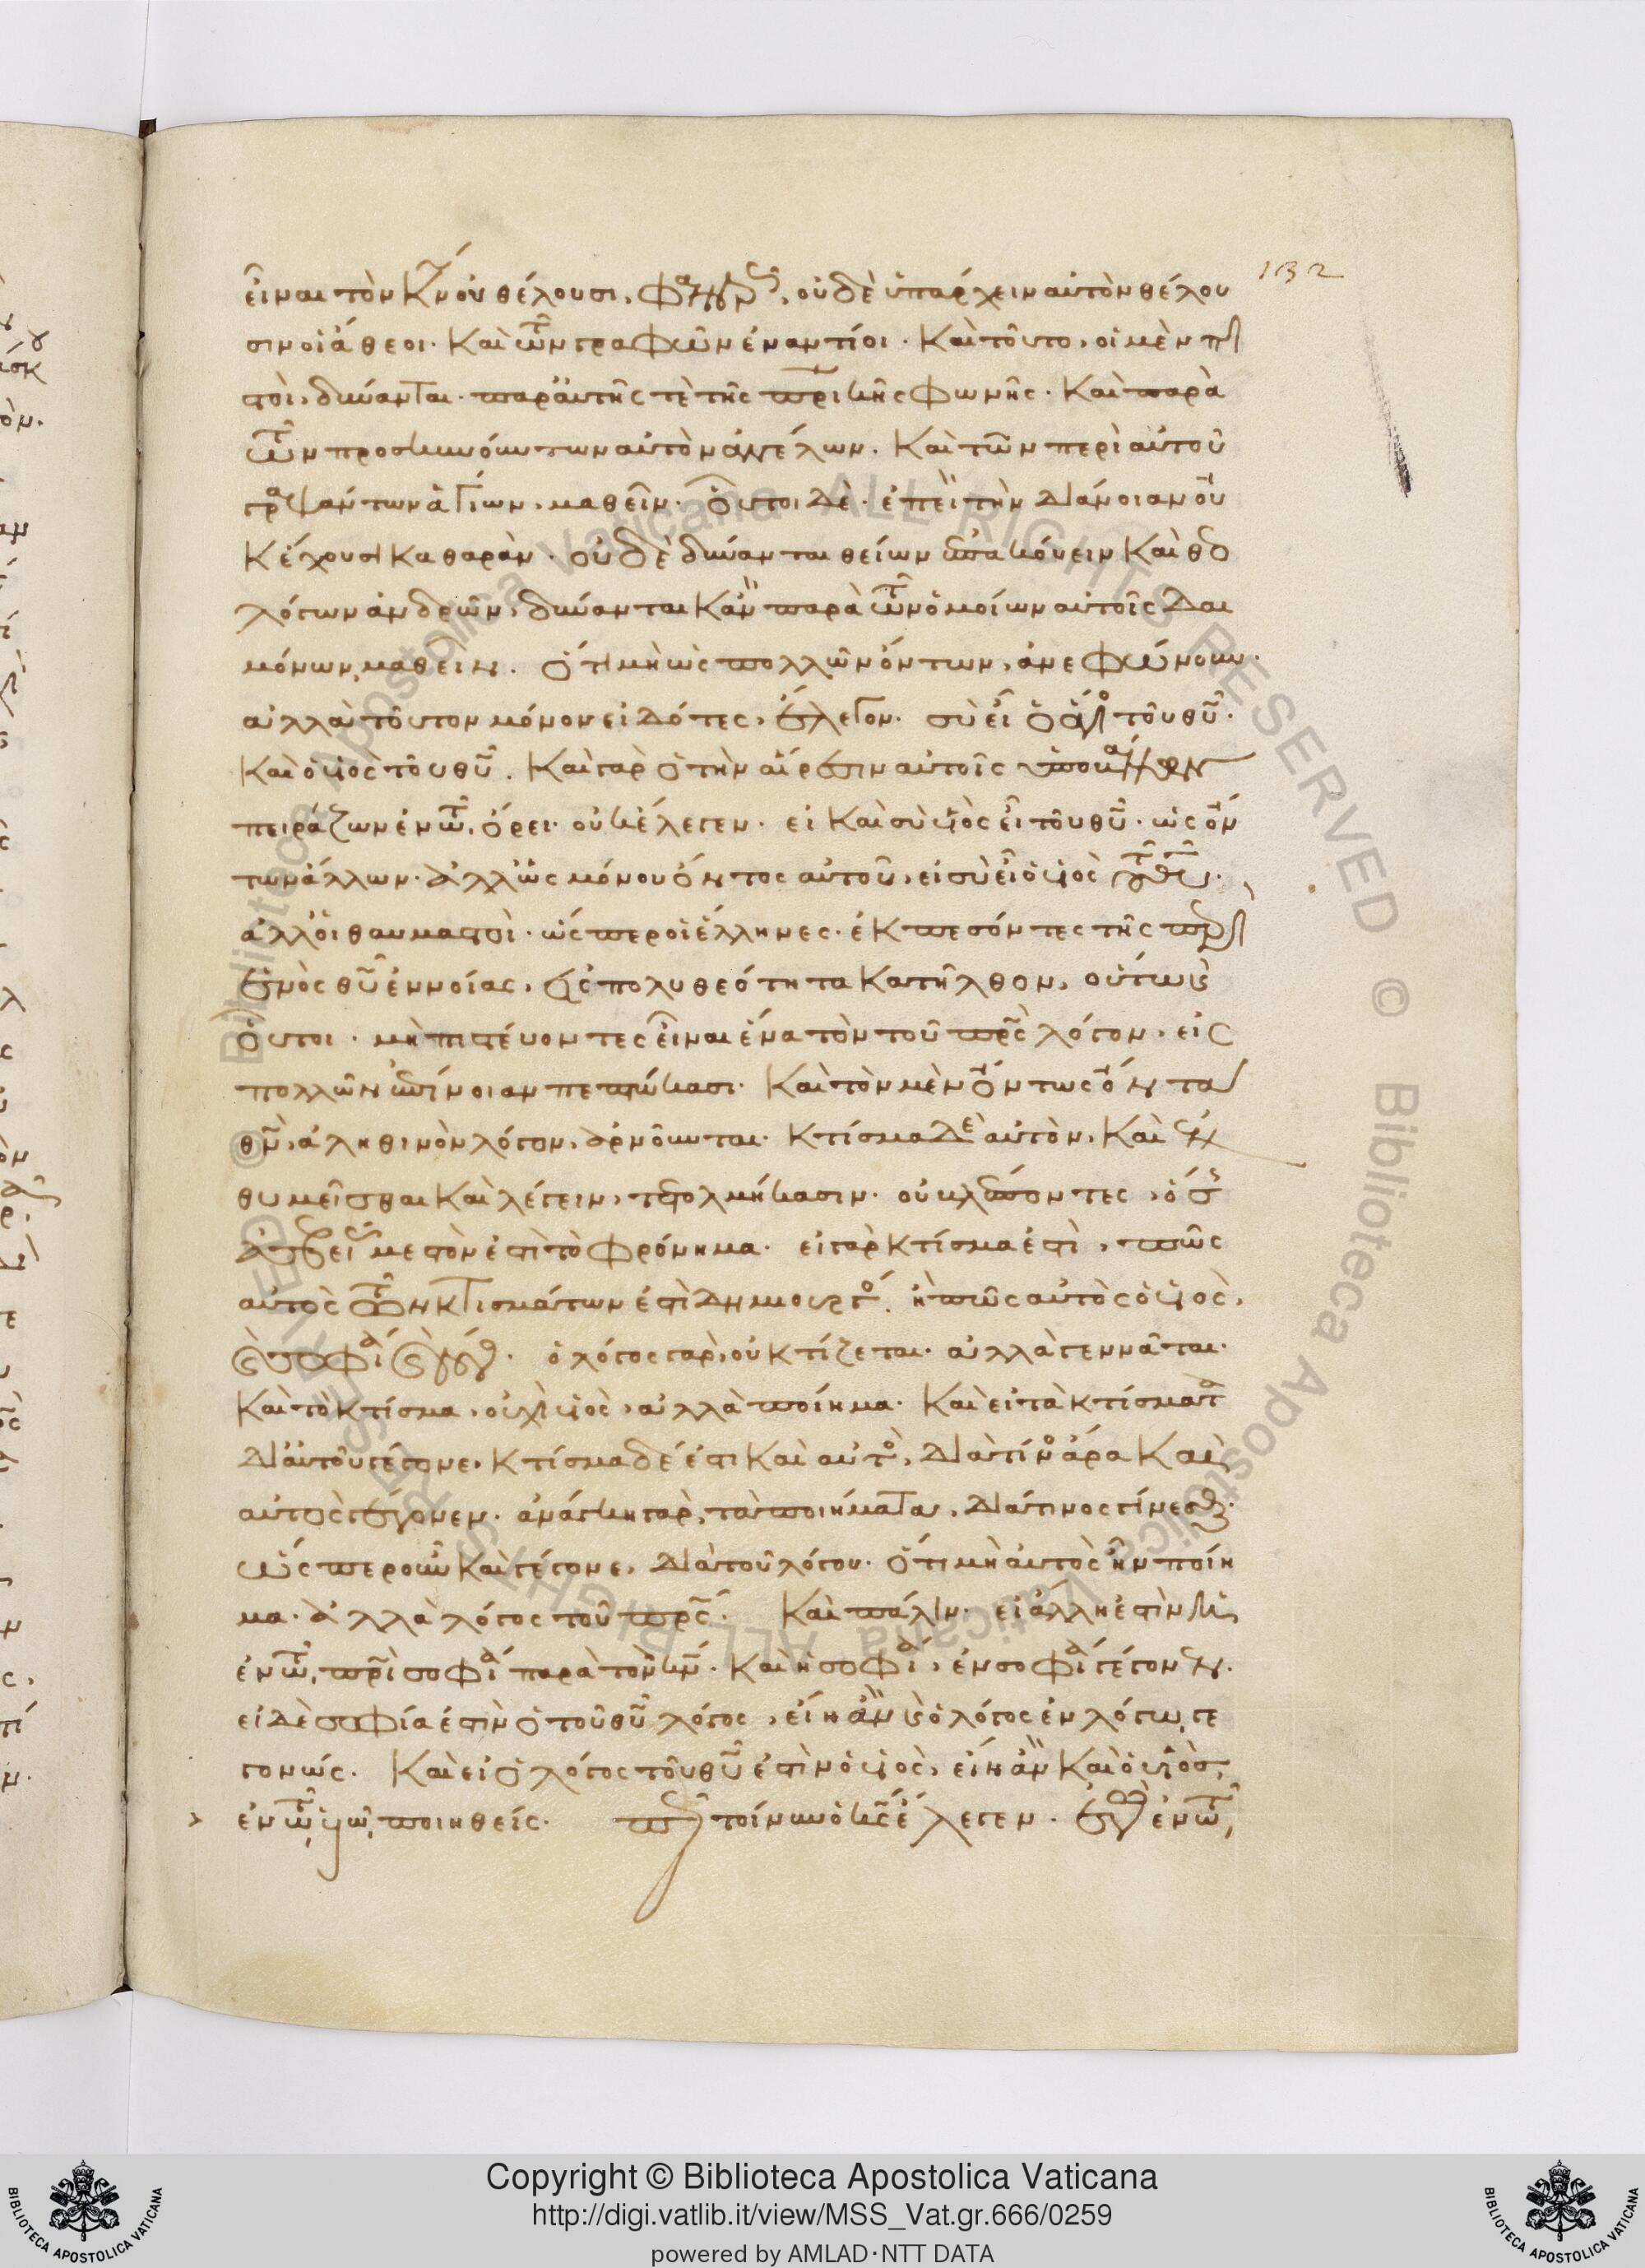 132
εἶναι τὸν κ̅ν̅ οὐ θέλουσι, φανερῶς, οὐδὲ ὑπάρχειν αὐτὸν θέλου
σιν οἱ ἄθεοι· καὶ τῶν γραφῶν ἐναντίοι. καὶ τοῦτο, οἱ μὲν πι
στοὶ, δύνανται· παρ' αὐτῆς τὲ τῆς π̅ρ̅ικῆς φωνῆς· καὶ παρὰ
τῶν προσκυνούντων αὐτὸν ἀγγέλων. καὶ τῶν περὶ αὐτοῦ
γραψάντων ἁγίων, μαθεῖν· οὗτοι δὲ· ἐπεὶ τὴν διάνοιαν οὐ
κ ἔχουσι καθαρὰν· οὐδὲ δύνανται θείων ἐπακούειν καὶ θεο
λόγων ἀνδρῶν, δύνανται κἂν παρὰ τῶν ὁμοίων αὐτοῖς δαι
μόνων, μαθεῖν. ὅτι μὴ ὡς πολλῶν ὄντων, ἀνεφώνουν·
ἀλλὰ τοῦτον μόνον εἰδότες, ἔλεγον· σὺ εἶ ὁ ἅγιος τοῦ θ̅υ̅·
καὶ ὁ υἱὸς τοῦ θ̅υ̅. καὶ γὰρ ὁ τὴν αἵρεσιν αὐτοῖς ὑποβάλλων
πειράζων ἐν τῷ ὄρει· οὐκ ἔλεγεν· εἰ καὶ σὺ υἱὸς εἶ τοῦ θ̅υ̅· ὡς ὄν
των ἄλλων· ἀλλ' ὡς μόνου ὄντος αὐτοῦ, εἰ σὺ εἶ ὁ υἱὸς τοῦ θ̅υ̅.
ἀλλ' οἱ θαυμαστοὶ· ὥσπερ οἱ ἕλληνες· ἐκπεσόντες τῆς περὶ
ἑνὸς θ̅υ̅ ἐννοίας, εἰς πολυθεότητα κατῆλθον, οὕτω καὶ
οὗτοι· μὴ πιστεύοντες εἶναι ἕνα τὸν τοῦ π̅ρ̅ς λόγον, εἰς
πολλῶν ἐπίνοιαν πεπτώκασι· καὶ τὸν μὲν ὄντως ὄντα
θ̅ν̅, ἀληθινὸν λόγον, ἀρνοῦνται· κτίσμα δὲ αὐτὸν, καὶ ἐν
θυμεῖσθαι καὶ λέγειν, τετολμήκασιν· οὐ βλέποντες, ὅσης
ἀσεβείας μεστὸν ἐστὶ τὸ φρόνημα· εἰ γὰρ κτίσμα ἐστὶ, πῶς
αὐτὸς τῶν κτισμάτων ἐστὶ δημιουργός. ἢ πῶς αὐτὸς ὁ υἱὸς,
καὶ σοφία καὶ λόγος· ὁ λόγος γὰρ, οὐ κτίζεται· ἀλλὰ γεννᾶται·
καὶ τὸ κτίσμα, οὐχὶ υἱὸς, ἀλλὰ ποίημα· καὶ εἰ τὰ κτίσματα
δι' αὐτοῦ γέγονε, κτίσμα δέ ἐστι καὶ αὐτὸς, διὰ τίνος ἄρα καὶ
αὐτὸς γέγονεν· ἀνάγκη γὰρ, τὰ ποιήματα, διά τινος γίνεσθαι·
ὥσπερ οὖν καὶ γέγονε, διὰ τοῦ λόγου· ὅτι μὴ αὐτὸς ἦν ποίη
μα· ἀλλὰ λόγος τοῦ π̅ρ̅ς. καὶ πάλιν· εἰ ἄλλη ἐστὶν
ἐν τῷ π̅ρ̅ὶ σοφία παρὰ τὸν κ̅ν̅. καὶ ἡ σοφία, ἐν σοφίᾳ γέγονεν.
εἰ δὲ σοφία ἐστὶν ὁ τοῦ θ̅υ̅ λόγος, εἴη ἂν καὶ ὁ λόγος ἐν λόγῳ γε
γονώς. καὶ εἰ ὁ λόγος τοῦ θ̅υ̅ ἐστὶν ὁ υἱὸς, εἴη ἂν καὶ ὁ υἱὸς,
ἐν τῷ υἱῷ, ποιηθείς. πῶς τοίνυν ὁ κ̅ς̅ ἔλεγεν. ἐγὼ ἐν τῷ
Copyright © Biblioteca Apostolica Vaticana
http://digi.vatlib.it/view/MSS_Vat.gr.666/0259
powered by AMLAD·NTT DATA